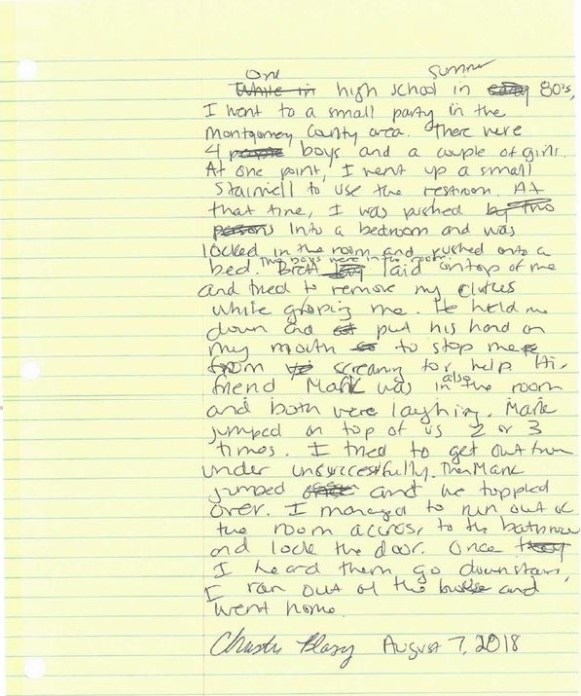 One summer
While in high school in early 80's,
I went to a small party in the
Montgomery County area. There were
4 people boys and a couple of girls.
At one point, I went up a small
stairwell to use the restroom. At
that time, I was pushed by two
persons into a bedroom and was
locked in the room and pushed onto a
bed. Two boys were in the room. Brett laid on top of me
and tried to remove my clothes
while groping me. He held me
down and put his hand on
my mouth to stop me
from screaming for help. His
friend Mark was also in the room
and both were laughing. Mark
jumped on top of us 2 or 3
times. I tried to get out from
under unsuccessfully. Then Mark
jumped and we toppled
over. I managed to run out of
the room across to the bathroom
and lock the door. Once they
I heard them go downstairs,
I ran out of the house and
went home.
August 7, 2018